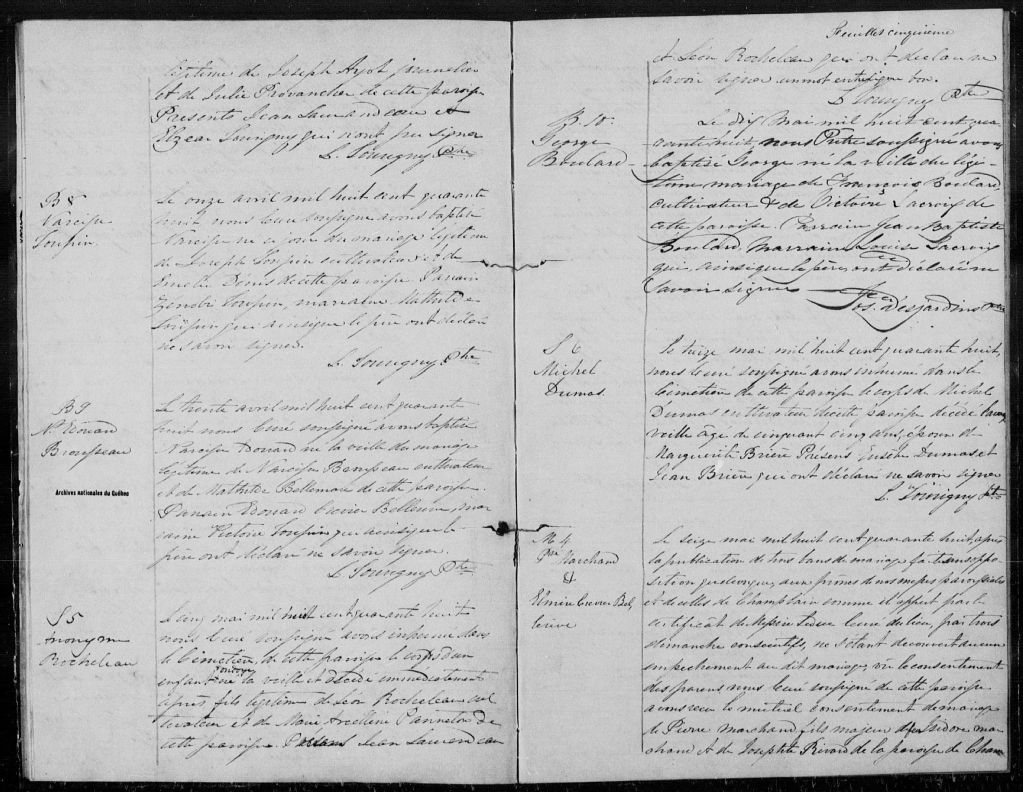 légitime de Joseph Ayot journalier
et de Julie Provancher de cette paroisse
Presents Jean Laurendeau et
Elzear Souvigny qui n'ont pu signer
L. Souvigny Ptre
B 8
Narcisse
Toupin
Le onze avril mil huit cent quarante
huit nous Curé soussigné avons baptisé
Narcisse né ce jour du mariage légitime
de Joseph Toupin cultivateur et de
Denis de cette paroisse Parrain
Toupin, marraine Mathilde
Toupin qui ainsi que le père ont déclaré
ne savoir signer.
L. Souvigny Ptre
B 9
Nse Edouard
Brousseau
Archives nationales du Québec
Le trente avril mil huit cent quarante
huit nous Curé soussigné avons baptisé
Narcisse Edouard né la veille du mariage
légitime de Narcisse cultivateur
et de Mathilde Bellemare de cette paroisse
Parrain Edouard Crevier Bellerive mar
raine Victoire Toupin qui ainsi que le
père ont déclaré ne savoir signer.
L. Souvigny Ptre
S 5
Anonyme
Rocheleau
Le cinq mai mil huit cent quarante huit
nous Curé soussigné avons inhumé dans
le Cimetière de cette paroisse le corps d'un
enfant ondoyé né la veille et décédé immédiatement
après fils légitime de Léon Rocheleau cul
tivateur et de Marie Arcelline Panneton de
cette paroisse Presens Jean Laurendeau
Feuillet cinquième
et Léon Rocheleau qui ont déclaré ne
savoir signer un mot bon.
L Souvigny Ptre
B. 10.
George
Boulard
Le dix mai mil huit cent qua
rante huit, nous Prêtre soussigné avons
baptisé George né la veille du légi-
time mariage de François Boulard
cultivateur & de Victoire Lacroix de
cette paroisse. Parrain Jean Baptiste
Boulard, marraine Louise Lacroix
qui, ainsi que le père, ont déclaré ne
savoir signer
Jos. Desjardins Ptre
S 6
Michel
Dumas
Le treize mai mil huit cent quarante huit,
nous Curé soussigné avons inhumé dans le
Cimetière de cette paroisse le corps de Michel
Dumas cultivateur de cette paroisse décédé l'avant
veille âgé de cinquante cinq ans époux de
Marguerite Brière Presens Dumas et
Jean Brière qui ont déclaré ne savoir signer
L. Souvigny Ptre
M. 4
Pre Marchand
&
Elmire Crevier Bel
lerive
Le seize mai mil huit cent quarante huit, après
la publication de trois bans de mariage faite sans oppo
sition quelconque, aux prônes de nos messes paroissiales
et de celles de Champlain comme il appert par le
certificat de Messire Curé du lieu, par trois
dimanches consécutifs, ne s'étant découvert aucun
empêchement au dit mariage, vu le consentement
des parens nous Curé soussigné de cette paroisse
avons reçu le mutuel consentement de mariage
de Pierre Marchand fils majeur de Isidore Mar
chand et de Josephte Rivard de la paroisse de Cham